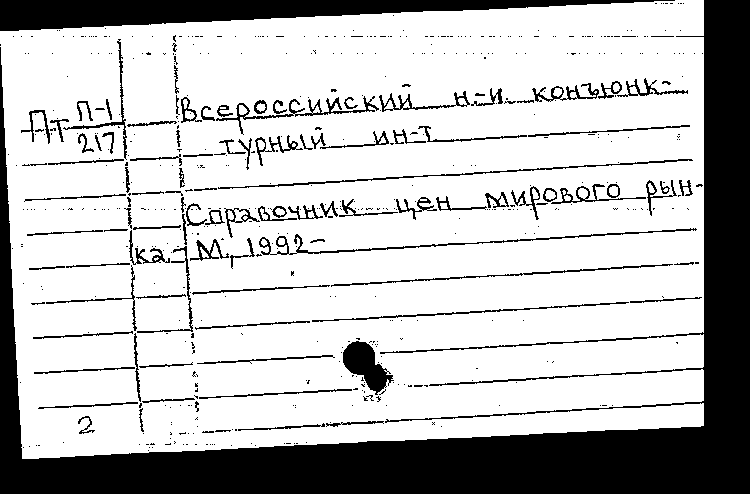 Пт П-1
217
Всероссийский н.-и. конъюнк-
турный ин-т
Справочник цен мирового рын-
ка.- М., 1992-
2